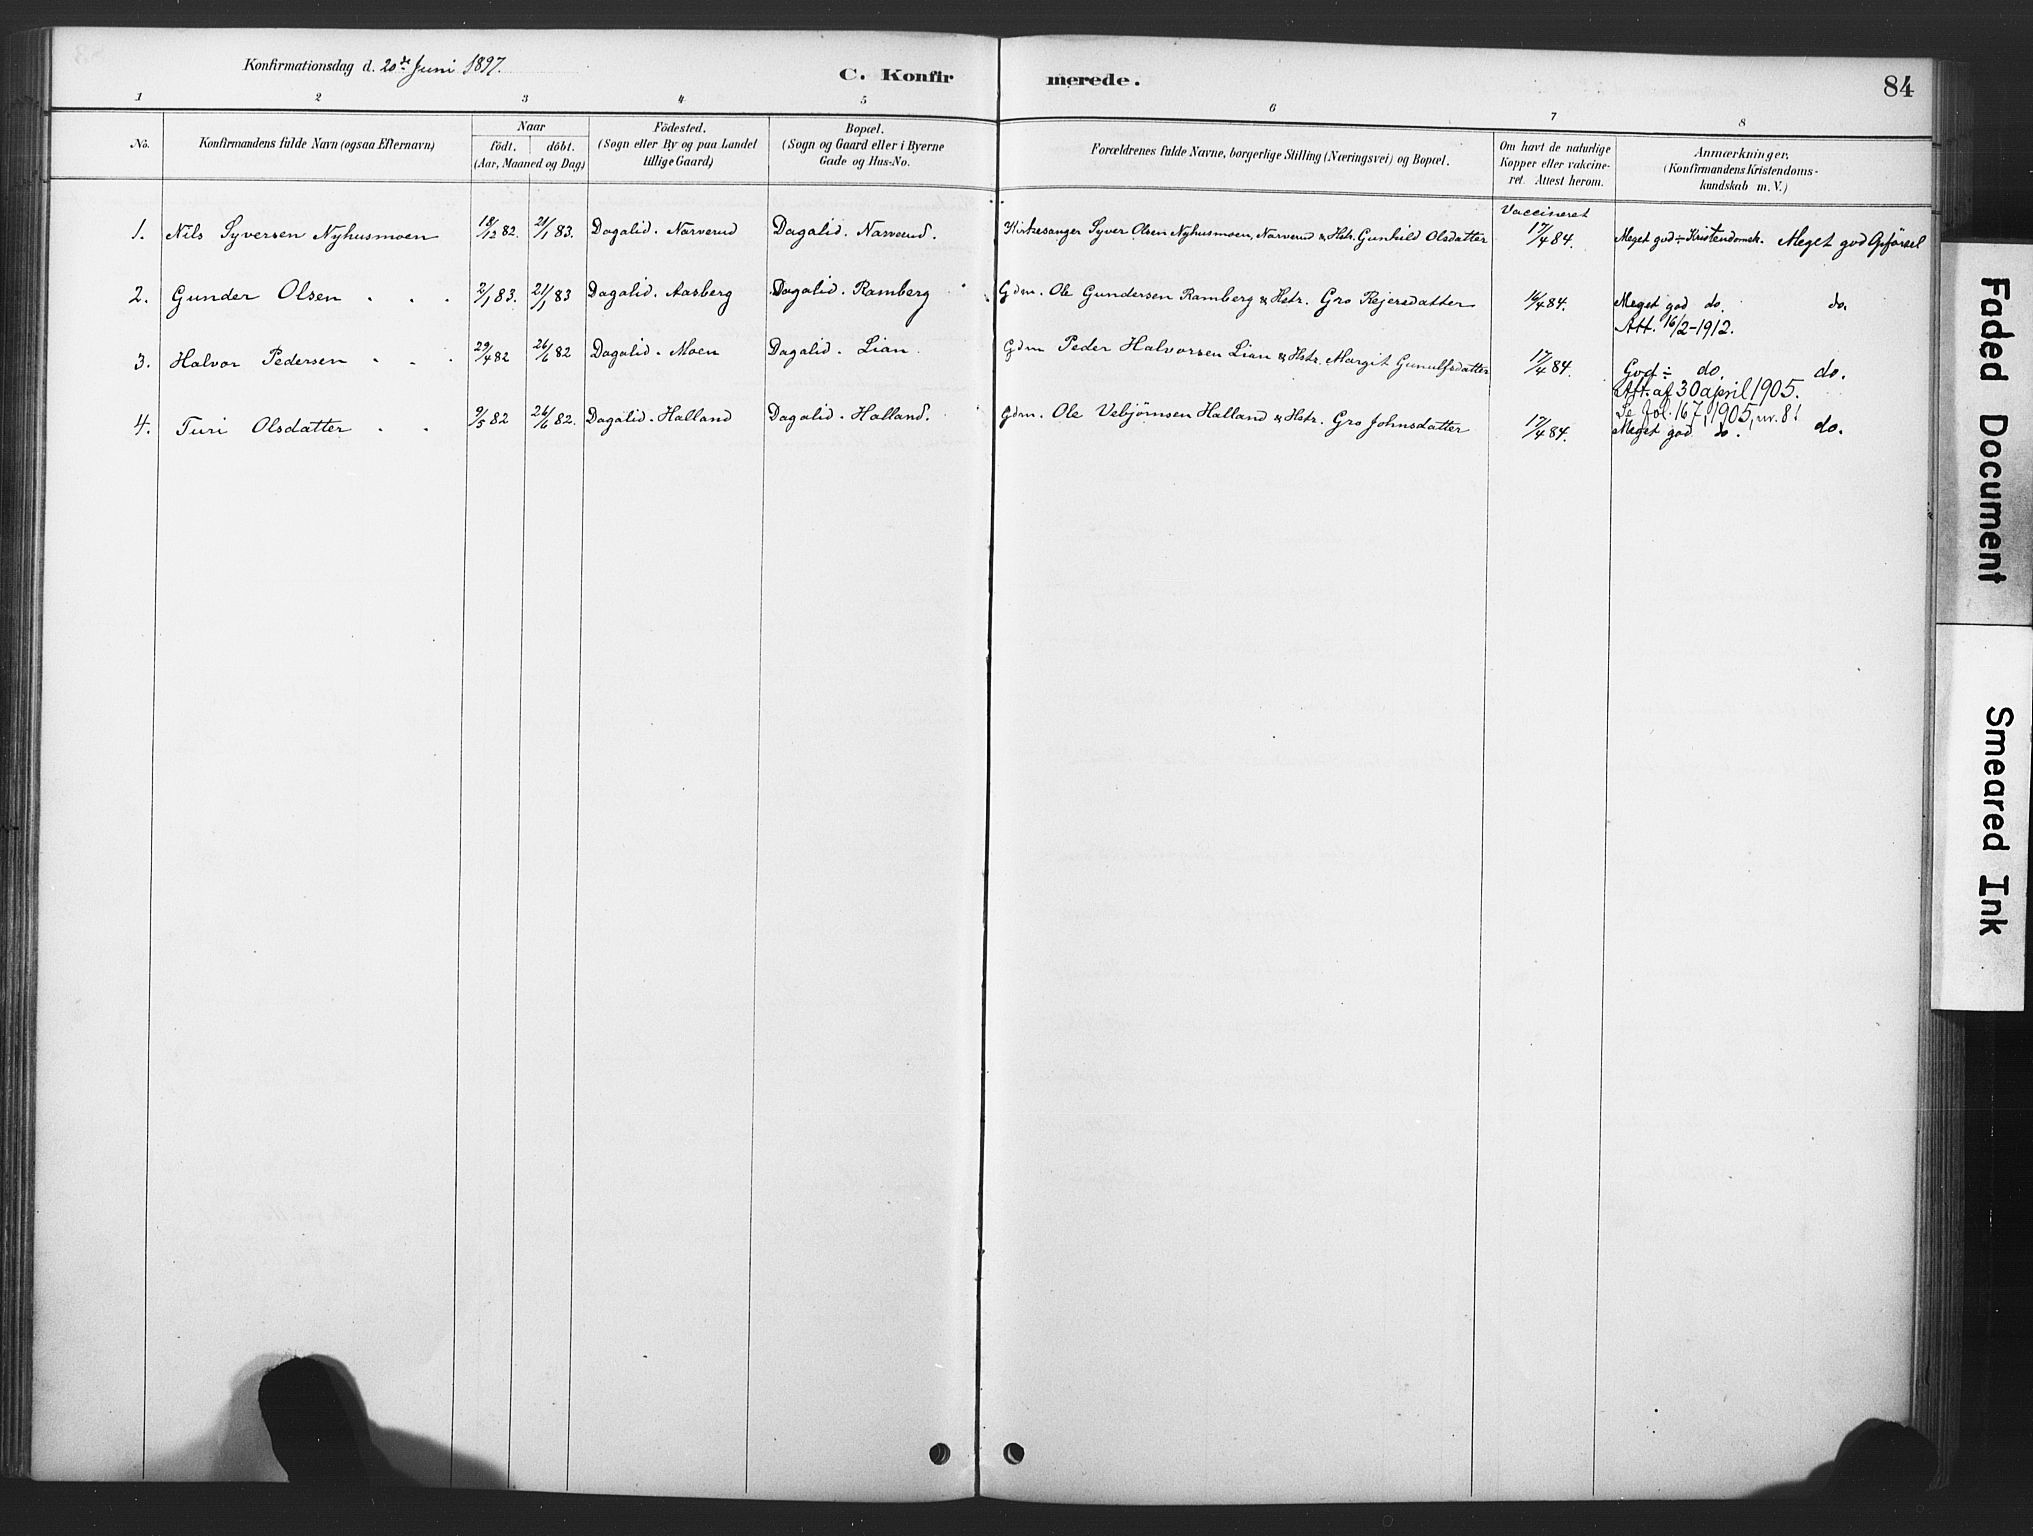 Konfirmationsdag d. 20de Juni 1897.
C. Konfirmerede.
84
1 2 3 4 5 6 7 8
No.
Konfirmandens fulde Navn (ogsaa Efternavn)
Naar
födt. döbt.
(Aar, Maaned og Dag)
Födested.
(Sogn eller By og paa Landet
tillige Gaard)
Bopæl.
(Sogn og Gaard eller i Byerne
Gade og Hus-No.
Forældrenes fulde Navne, borgerlige Stilling (Næringsvei) og Bopæl.
Om havt de naturlige
Kopper eller vakcine-
ret. Attest herom.
Anmærkninger.
(Konfirmandens Kristendoms-
kundskab m. V.)
Vaccineret
1. Nils Syversen Nyhusmoen 18/12 82. 21/1 83. Dagalid. Narverud Dagalid. Narverud. Kirkesanger Syver Olsen Nyhusmoen, Narverud & Hstr. Gunhild Olsdatter 17/4 84. Meget god ÷ Kristendomsk. Meget god Opförsel
2. Gunder Olsen . . . 2/1 83. 21/1 83 Dagalid. Aasberg Dagalid. Ramberg Gdm. Ole Gundersen Ramberg & Hstr. Gro Rejersdatter 16/4 84. Meget god do. do.
Att. 16/2-1912.
3. Halvor Pedersen . . . 29/4 82 26/6 82 Dagalid. Moen Dagalid. Lian. Gdm Peder Halvorsen Lian & Hstr. Margit Gunulfsdatter 17/4 84. God ÷ do. do.
Att. af 30 april 1905.
Se fol. 167, 1905, nr. 8!
4. Turi Olsdatter . . 9/5 82 26/6 82. Dagalid. Halland Dagalid. Halland. Gdm. Ole Vebjörnsen Halland & Hstr. Gro Johnsdatter 17/4 84. Meget god do. do.
Faded Document
Smeared Ink